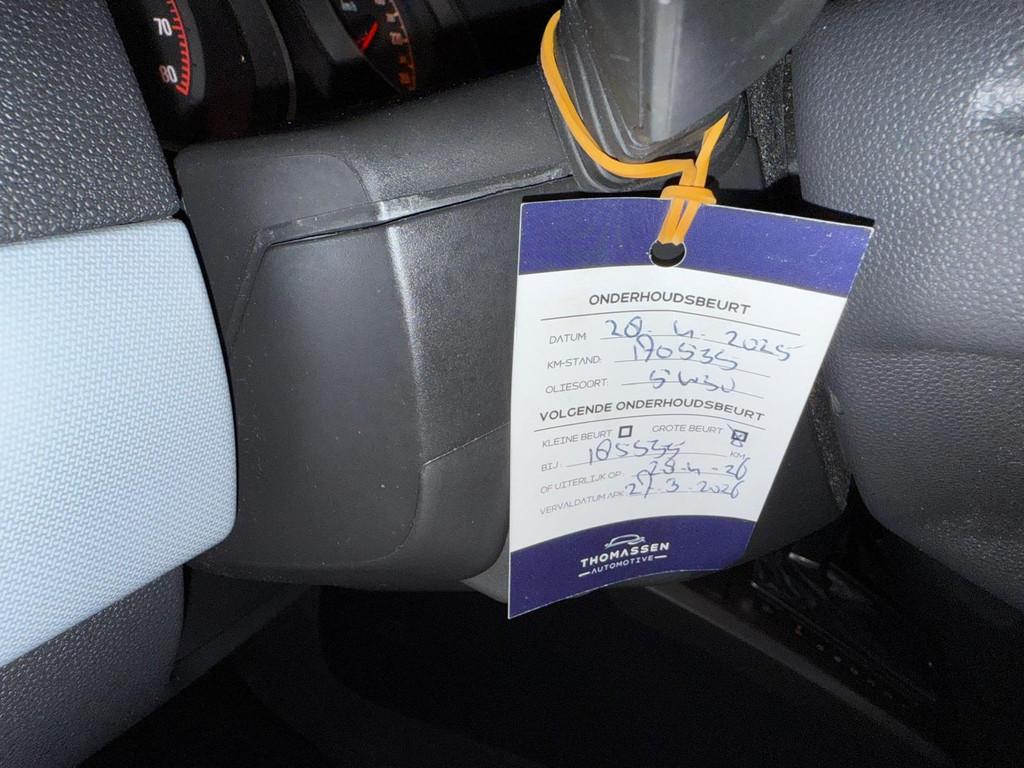 70
80
ONDERHOUDSBEURT
DATUM 28-4-2025
KM-STAND: 170535
OLIESOORT: 5W30
VOLGENDE ONDERHOUDSBEURT
KLEINE BEURT GROTE BEURT
BIJ: 185535 KM
OF UITERLIJK OP: 28-4-26
VERVALDATUM APK: 27-3-2026
THOMASSEN
AUTOMOTIVE